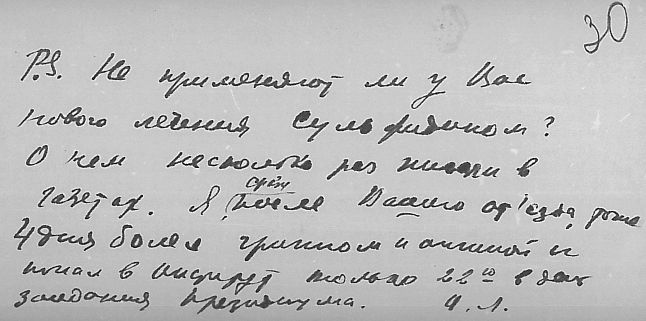 30
P.S. Не применяют ли у Вас
нового лечения сульфидином?
О чем несколько раз писали в
газетах. Я, сразу после Вашего от'езда, тоже
4 дня болел гриппом и ангиной и
попал в только 22го в день
заседания президиума.